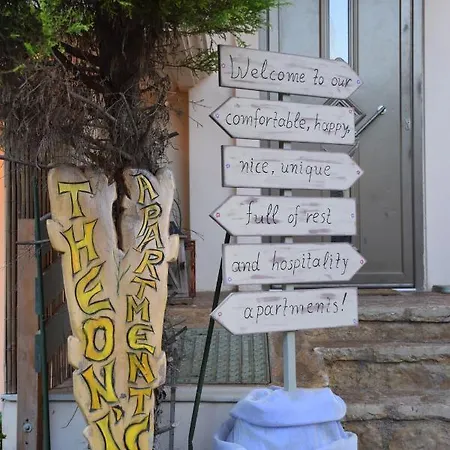 THEONI'
APARTMENTS
Welcome to our
comfortable, happy,
nice, unique
full of rest
and hospitality
apartments!